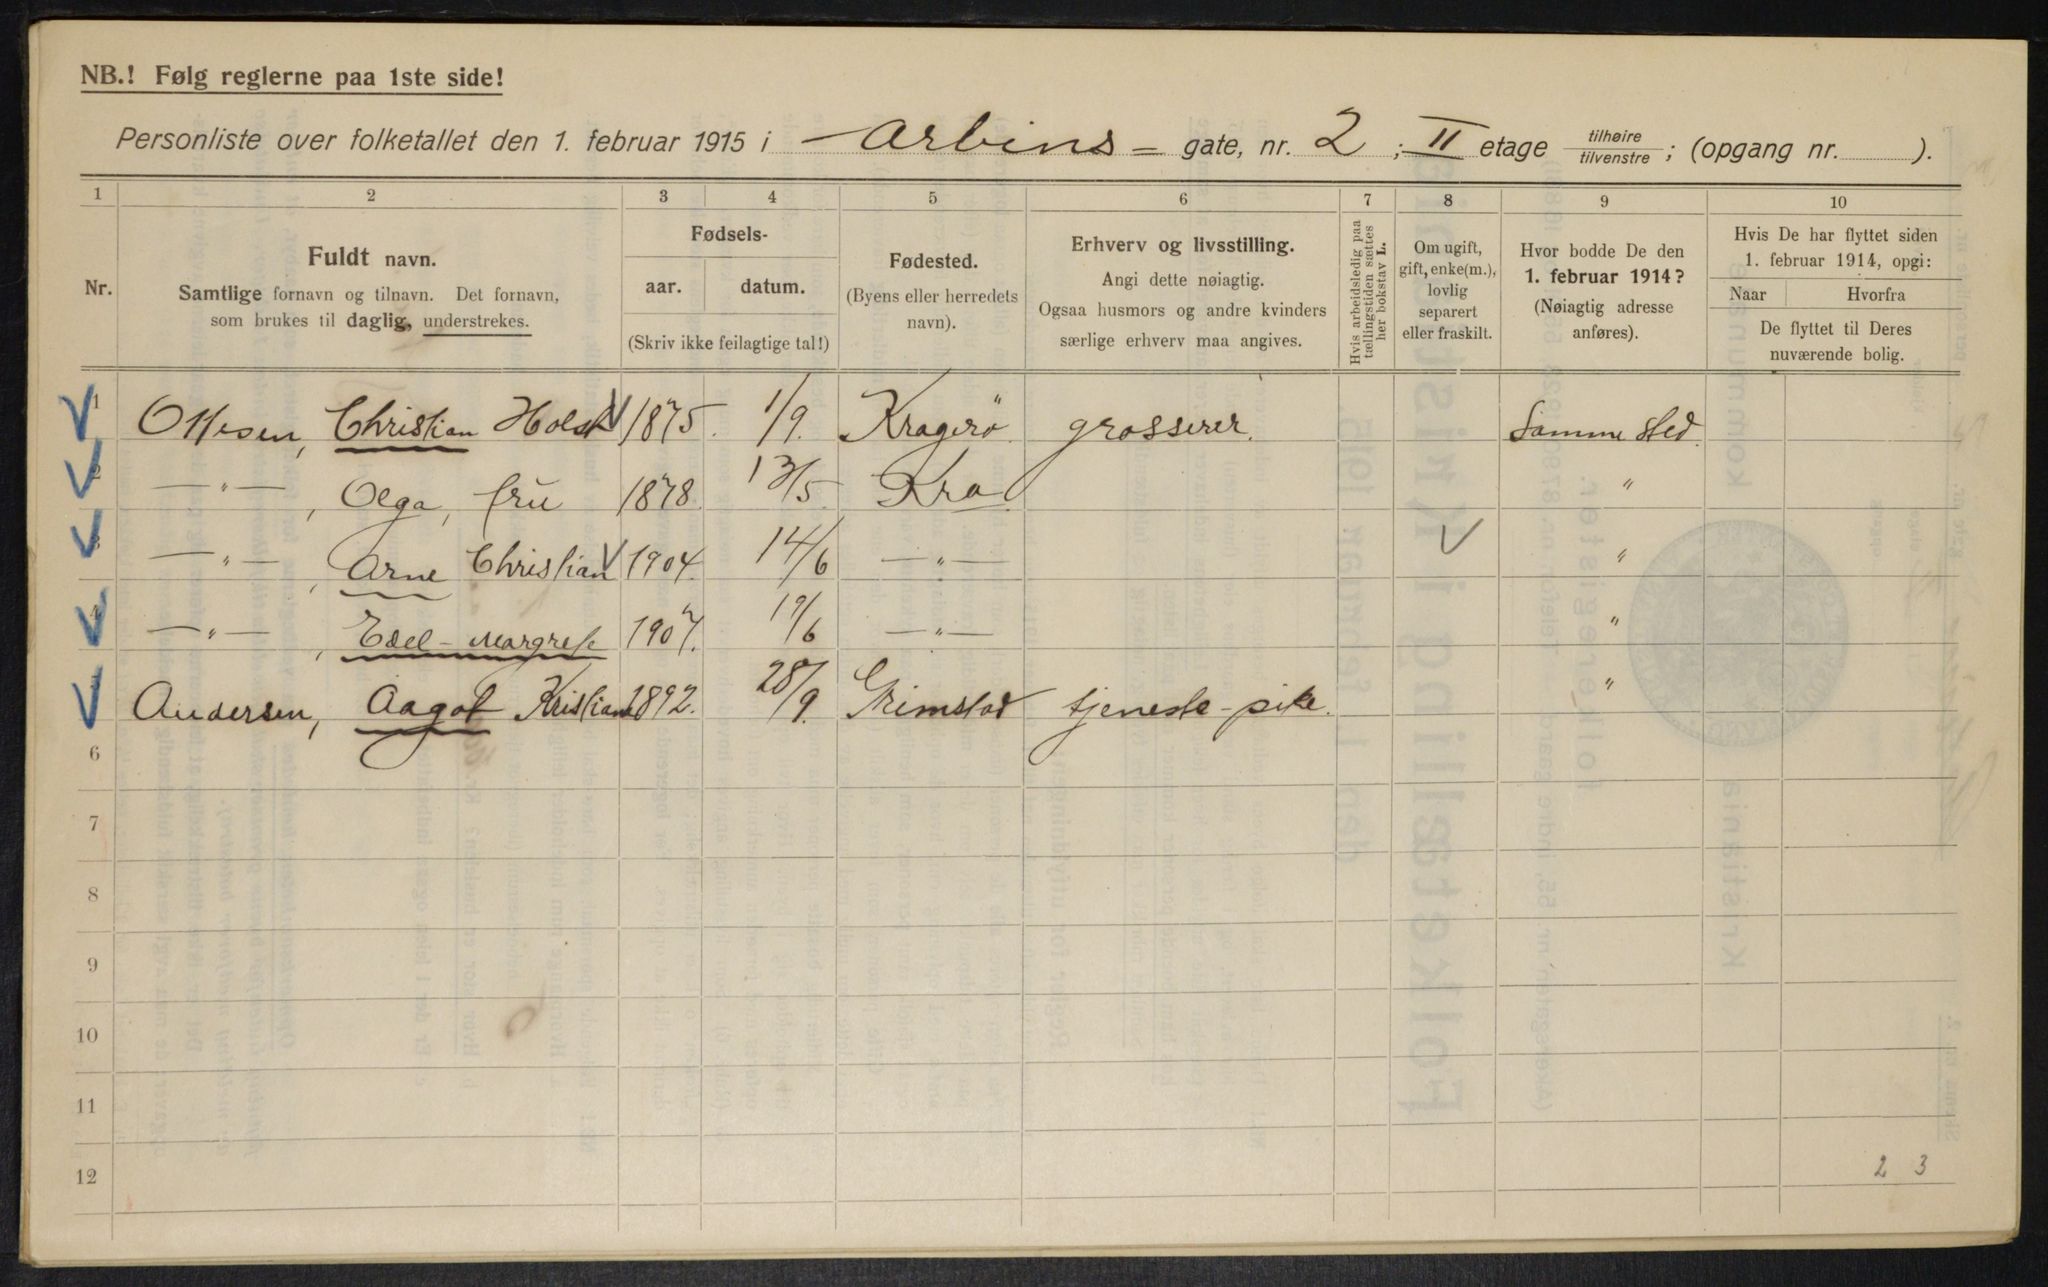 NB.! Følg reglerne paa 1ste side!
Personliste over folketallet den 1. februar 1915 i Arbins = gate, nr. 2 ; II etage tilhøire tilvenstre ; (opgang nr. ).
1 2 3 4 5 6 7 8 9 10
Nr.
Fuldt navn.
Samtlige fornavn og tilnavn. Det fornavn,
som brukes til daglig, understrekes.
Fødsels-
aar. datum.
(Skriv ikke feilagtige tal!)
Fødested.
(Byens eller herredets
navn).
Erhverv og livsstilling.
Angi dette nøiagtig.
Ogsaa husmors og andre kvinders
særlige erhverv maa angives.
Hvis arbeidsledig paa
tællingstiden sættes
her bokstav L.
Om ugift,
gift, enke(m.),
lovlig
separert
eller fraskilt.
Hvor bodde De den
1. februar 1914?
(Nøiagtig adresse
anføres).
Hvis De har flyttet siden
1. februar 1914, opgi:
Naar Hvorfra
De flyttet til Deres
nuværende bolig.
1 Ottesen, Christian Holst 1875. 1/9. Kragerö. grosserer. Samme sted.
2 —"— , Olga, fru 1878. 13/5. Kra "
3 —"— , Arne Christian 1904. 14/6 —"— "
4 —"— , Edel-Margrete 1907. 19/6 —"— "
5 Andersen, Aagot Kristiane 1892. 28/9. Grimstad tjeneste-pike. "
6
7
8
9
10
11
12
2 3